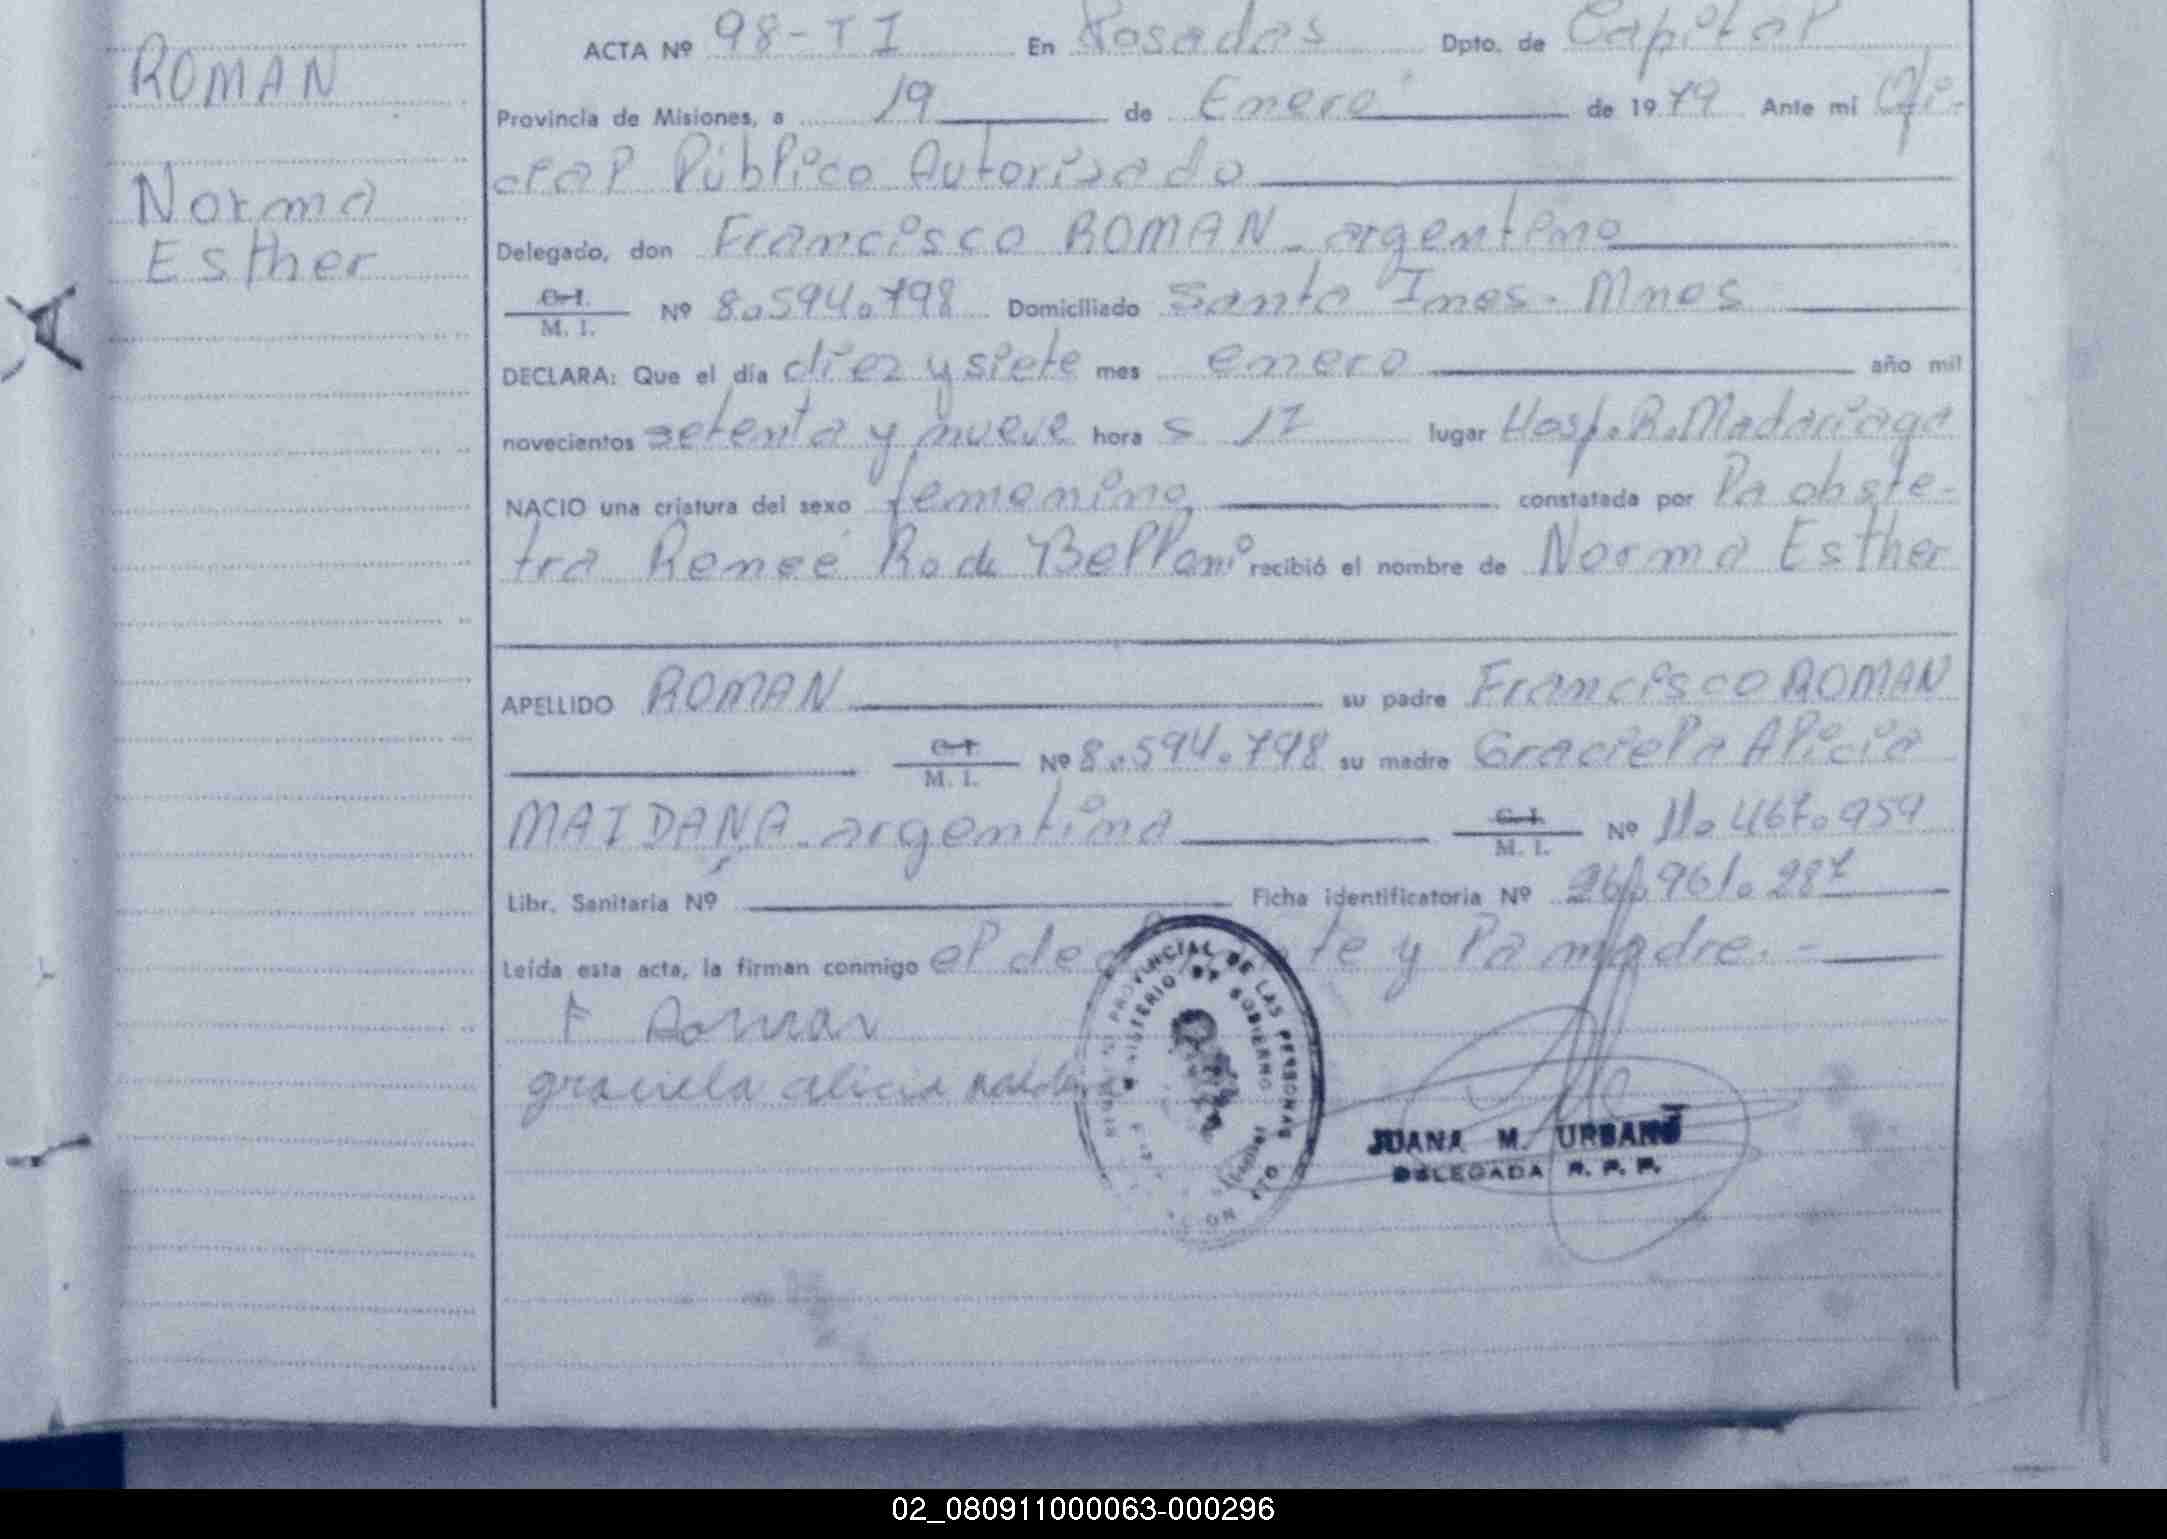 ROMAN
Norma
Esther
ACTA Nº 98-TI En Posadas Dpto. de Capital
Provincia de Misiones, a 19 de Enero de 1979 Ante mi Ofi-
cial Público Autorizado
Delegado, don Francisco ROMAN - argentino
C.I. M. I. Nº 8.594.798 Domiciliado Santa Ines - Mnes
DECLARA: Que el día diez y siete mes enero año mil
novecientos setenta y nueve hora s 12 lugar Hosp. R. Madariaga
NACIO una criatura del sexo femenino constatada por la obste-
tra Reneé R. de Belloni recibió el nombre de Norma Esther
APELLIDO ROMAN su padre Francisco ROMAN
C.I. M. I. Nº 8.594.798 su madre Graciela Alicia
MAIDANA - argentina C.I. M. I. Nº 11.467.959
Libr. Sanitaria Nº Ficha identificatoria Nº 26.961.287
Leída esta acta, la firman conmigo el y la madre. -
F Roman
graciela alicia
PROVINCIAL DE LAS PERSONAS
MINISTERIO DE GOBIERNO
JUANA M. URBANO
DELEGADA R. P. P.
02_080911000063-000296